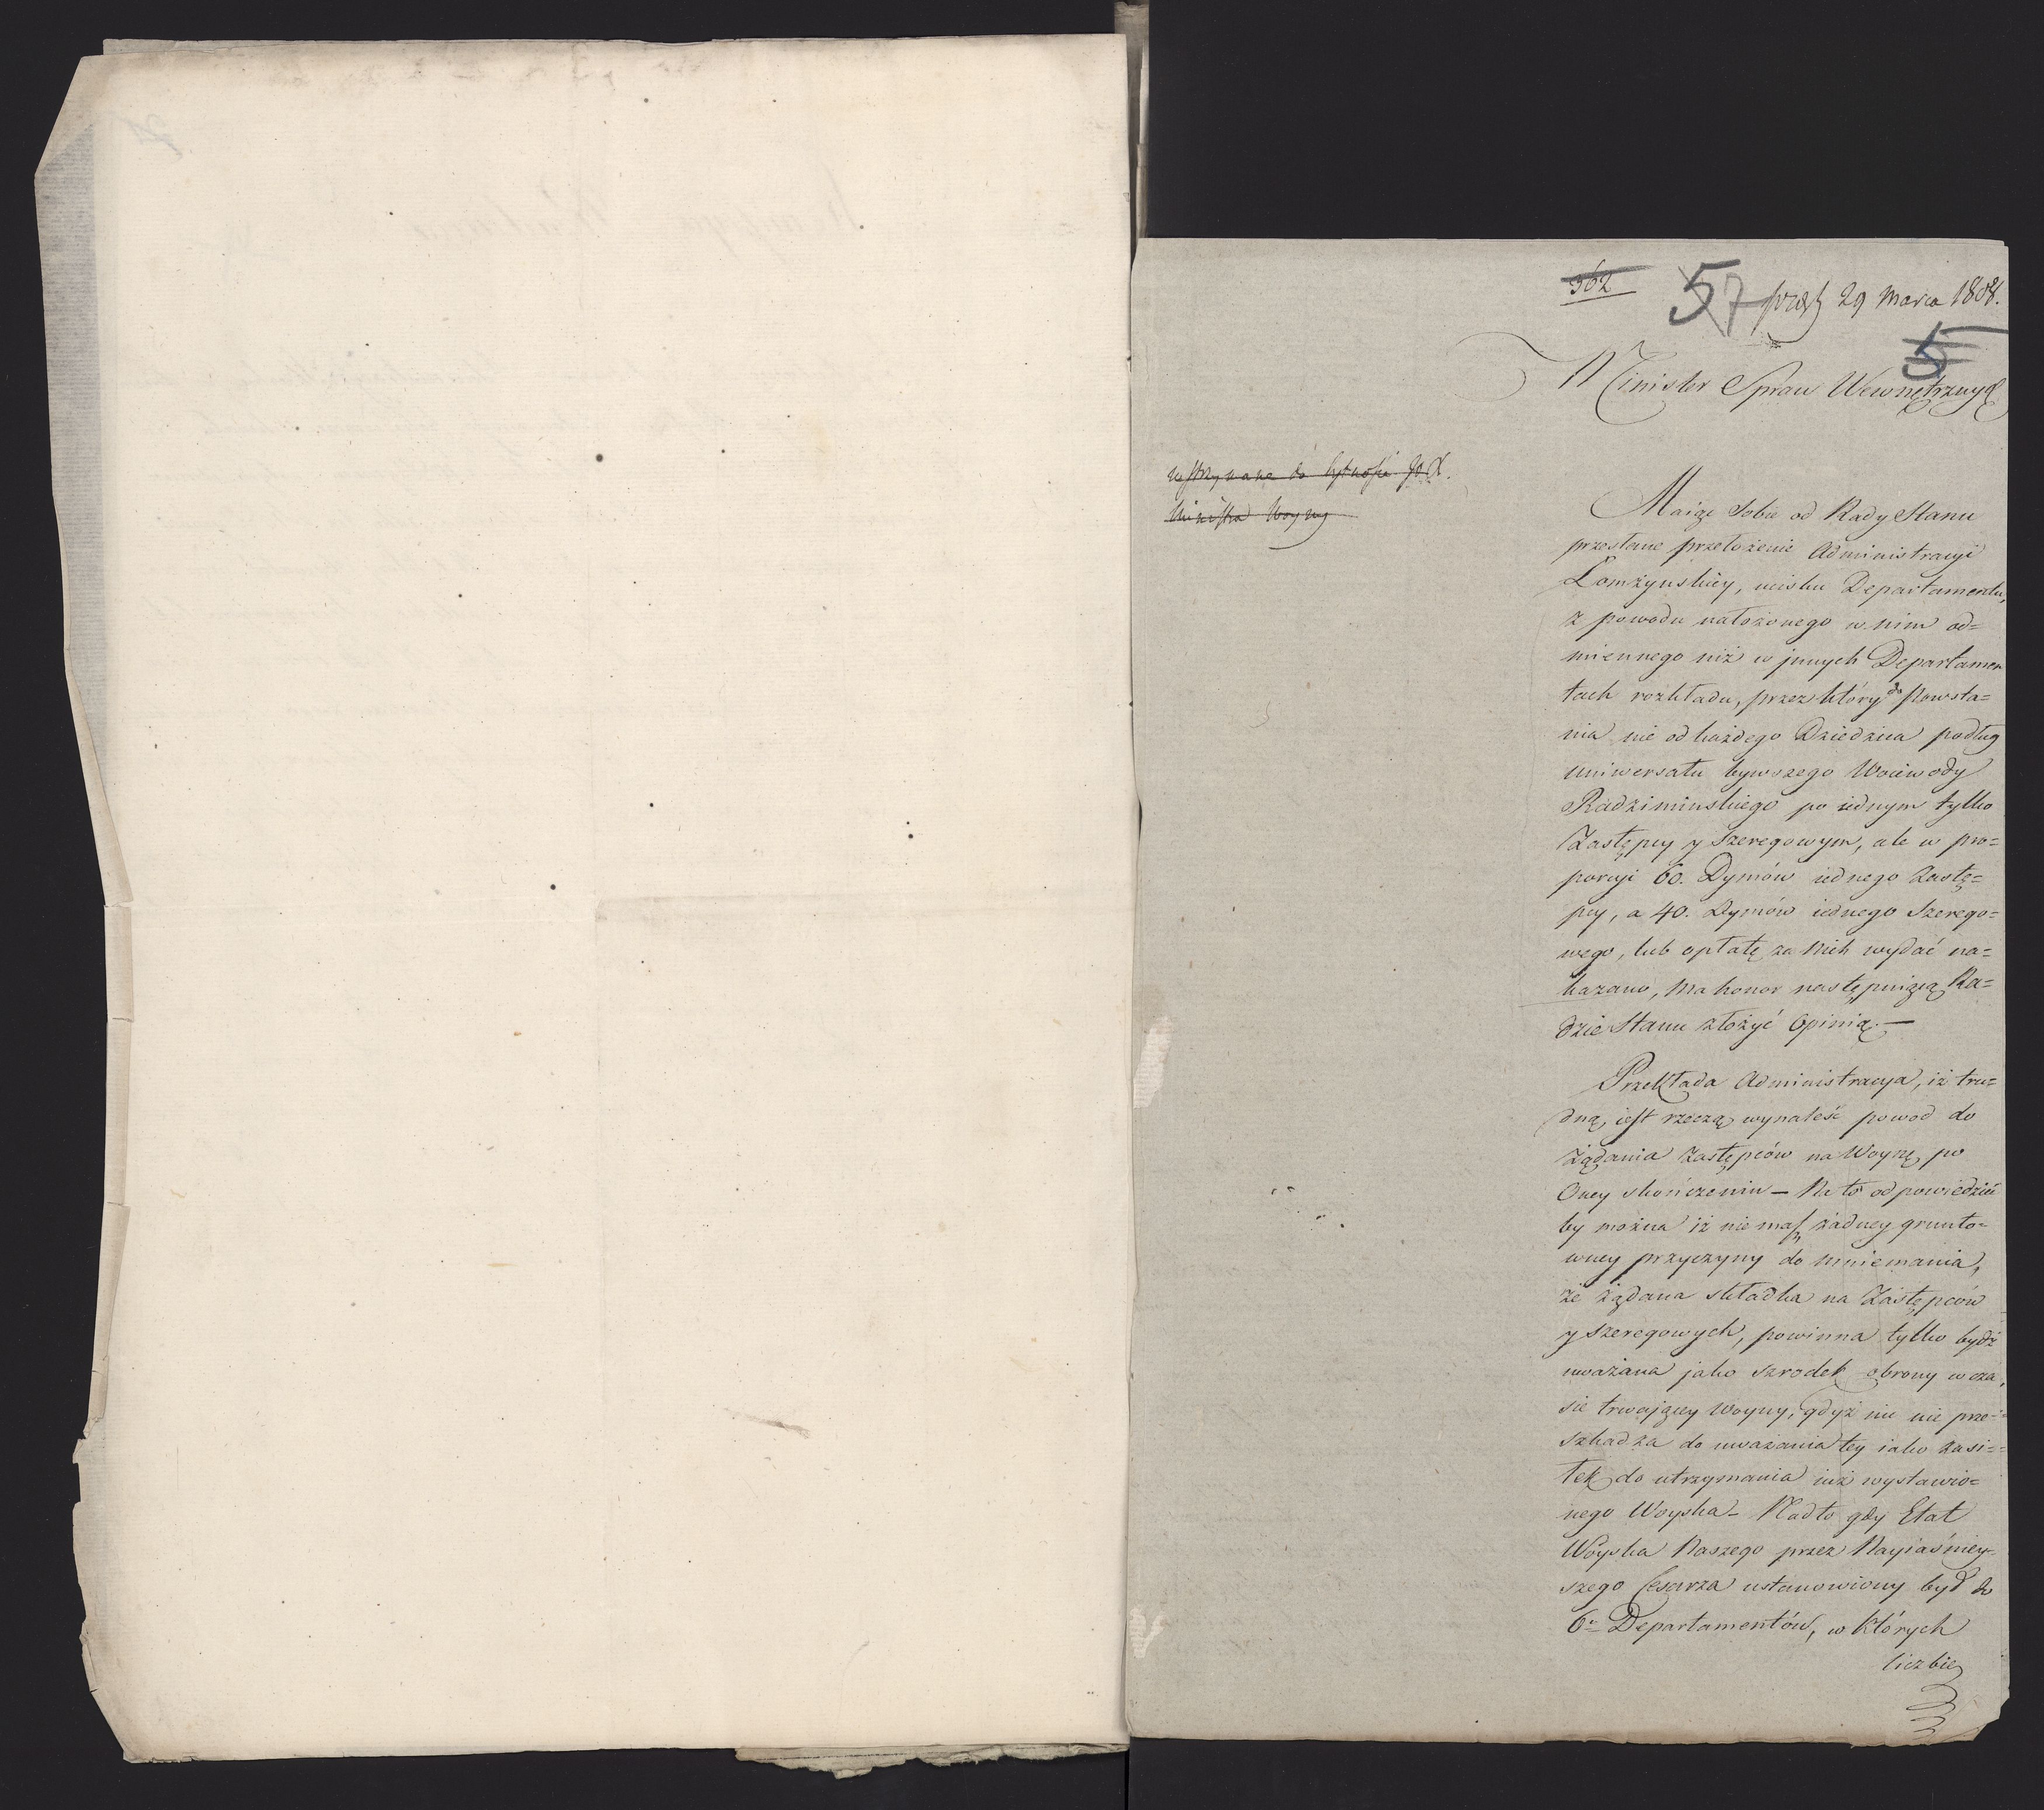 362
57 præs 29 Marca 1808.
5
Minister Spraw Wewnętrznych
wstrzymane do bytności JO X.
Ministra Woyny
Maiąc Sobie od Rady Stanu
przesłane przełożenie Administracyi
Łomżyńskiey, ucisku Departamentu,
z powodu nałożonego w nim od=
miennego niż w jnnych Departamen
tach rozkładu, przez który do Powsta=
nia nie od każdego Dziedzica podług
uniwersału bywszego Woiewody
Radziminskiego po iednym tylko
Zastępcy y Szeregowym, ale w pro=
porcyi 60. Dymów iednego Zastę=
pcy, a 40. Dymów iednego Szerego=
wego, lub opłatę za Nich wydać na=
kazano, ma honor następuiącą Ra=
dzie Stanu złożyć Opinią.—
Przekłada Administracya, iż tru=
dną iest rzeczą wynaleść powod do
żądania Zastępców na Woynę po
Oney skończeniu — Na to odpowiedzieć
by można iż nie masz żadney grunto=
wney przyczyny do mniemania,
że żądana składka na Zastępców
y szeregowych, powinna tylko bydź
uważana jako szrodek obrony w cza,
sie trwaiącey Woyny, gdyż nic nie prze=
szkadza do uważania tey iako zasi=
łek do utrzymania iuż wystawio=
nego Woyska — Nadto gdy Etat
Woyska Naszego przez Nayiaśniey-
szego Cesarza ustanowiony był do
6r Departamentów, w których
liczbie